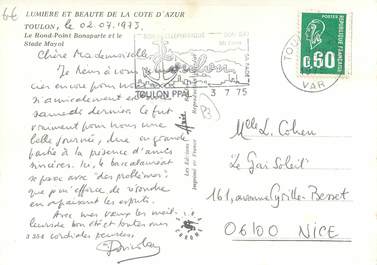 66
LUMIERE ET BEAUTE DE LA COTE D'AZUR
TOULON, le 02.07.1973
Le Rond-Point Bonaparte et le
Stade Mayol
Chère Mademoiselle,
Je tiens à vous
cier encore pour nous
si amicalement
samedi dernier. Ce fut
vraiment pour nous une
belle journée, due en grande
partie à la présence d'amis
sincères. Ici, le baccalauréat
se passe avec "des problèmes"
que j'on s'efforce de résoudre
en apaisant les esprits.
Avec mes vœux les meil-
leurs de bon été et toutes nos
cordiales pensées.
TOULON PPAL
3 7 75
TOULON
VAR
0,60
Les Editions
Imprimé en France
Mlle L. Cohen
"Le Gai Soleil"
161, avenue Cyrille-Besset
06100 NICE